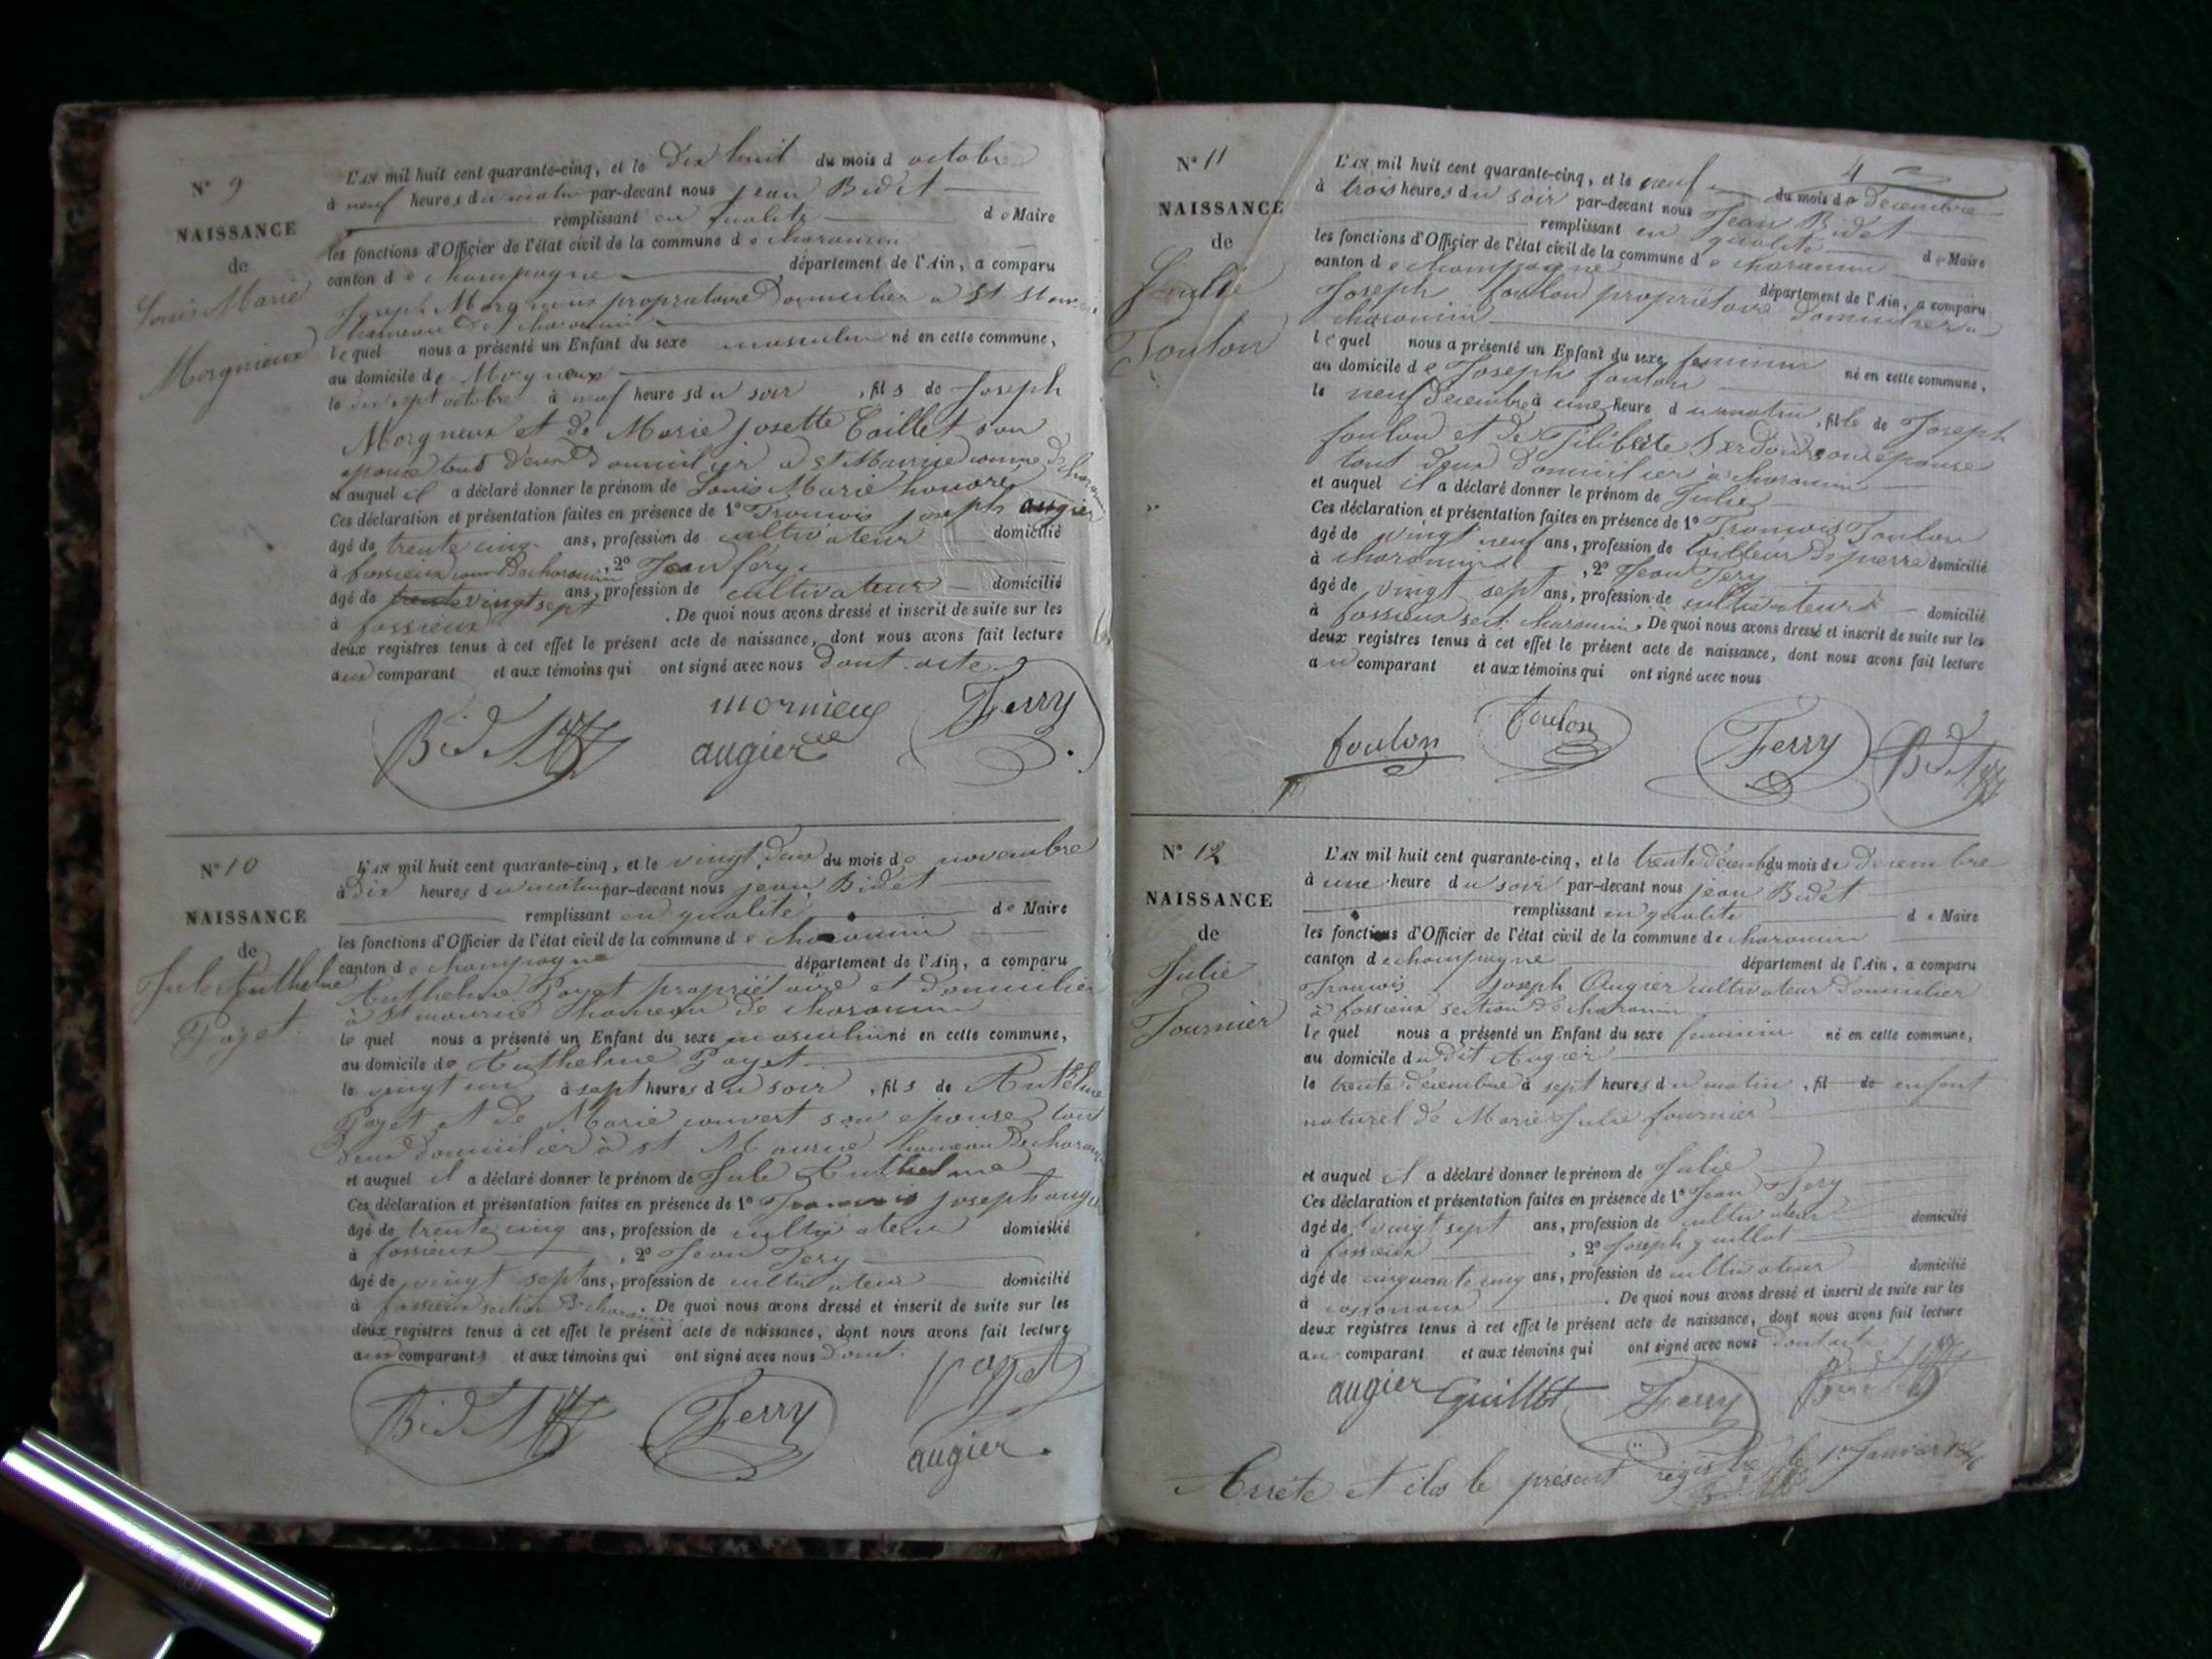 N° 9
NAISSANCE
de
Louis Marie
Morgnieux
L'AN mil huit cent quarante-cinq, et le Dix huit du mois d octobre
à neuf heures du matin par-devant nous jean Bidet
remplissant en qualité de Maire
les fonctions d'Officier de l'état civil de la commune de charancin
canton de champagne département de l'Ain, a comparu
Joseph Morgnieux propriétaire Domicilier a St
hameau De charancin
lequel nous a présenté un Enfant du sexe masculin né en cette commune,
au domicile de Morgneux
le dix sept octobre à neuf heures du soir, fils de Joseph
Morgneux et de Marie josette Caillet son
epouse tout deux Domicilier a St Maurice
et auquel il a déclaré donner le prénom de Louis Marie honore
Ces déclaration et présentation faites en présence de 1° Francois joseph augier
âgé de trente cinq ans, profession de cultivateur domicilié
à fossieux De charancin, 2° Jean féry
âgé de vingt sept ans, profession de cultivateur domicilié
à fossieux. De quoi nous avons dressé et inscrit de suite sur les
deux registres tenus à cet effet le présent acte de naissance, dont nous avons fait lecture
aux comparant et aux témoins qui ont signé avec nous Dont acte
Bidet mornieux Ferry
augier
N° 10
NAISSANCE
de
Jule Anthelme
Poget
L'AN mil huit cent quarante-cinq, et le vingt deux du mois de novembre
à dix heures du matin par-devant nous jean Bidet
remplissant en qualité de Maire
les fonctions d'Officier de l'état civil de la commune de charancin
canton de champagne département de l'Ain, a comparu
Anthelme Poget propriétaire et domicilier
à St maurice hameau de charancin
lequel nous a présenté un Enfant du sexe masculin né en cette commune,
au domicile de Anthelme Poget
le vingt un à sept heures du soir, fils de Antelme
Poget et de Marie couvert son epouse tout
deux domicilier à st Maurice hameau De charancin
et auquel il a déclaré donner le prénom de Jule Anthelme
Ces déclaration et présentation faites en présence de 1° Francois joseph augier
âgé de trente cinq ans, profession de cultivateur domicilié
à fossieux, 2° Jean Fery
âgé de vingt sept ans, profession de cultivateur domicilié
à fossieux section De charancin. De quoi nous avons dressé et inscrit de suite sur les
deux registres tenus à cet effet le présent acte de naissance, dont nous avons fait lecture
aux comparants et aux témoins qui ont signé avec nous Dont
Bidet Ferry poget
augier
4
N° 11
NAISSANCE
de
Julie
Foulon
L'AN mil huit cent quarante-cinq, et le neuf du mois de Decembre
à trois heures du soir par-devant nous Jean Bidet
remplissant en qualité de Maire
les fonctions d'Officier de l'état civil de la commune de charancin
canton de champagne département de l'Ain, a comparu
Joseph foulon propriétaire Domicilier a
charancin
lequel nous a présenté un Enfant du sexe feminin né en cette commune,
au domicile de Joseph foulon
le neuf Decembre à une heure du matin, fille de Joseph
foulon et de son epouse
tout deux Domicilier à charancin
et auquel il a déclaré donner le prénom de Julie
Ces déclaration et présentation faites en présence de 1° Francois Foulon
âgé de vingt neuf ans, profession de tailleur De pierre domicilié
à charancin, 2° Jean Fery
âgé de vingt sept ans, profession de cultivateur domicilié
à fossieux sect. charancin. De quoi nous avons dressé et inscrit de suite sur les
deux registres tenus à cet effet le présent acte de naissance, dont nous avons fait lecture
au comparant et aux témoins qui ont signé avec nous
foulon foulon Ferry Bidet
N° 12
NAISSANCE
de
Julie
Fournier
L'AN mil huit cent quarante-cinq, et le trente décemb du mois de Decembre
à une heure du soir par-devant nous jean Bidet
remplissant en qualité de Maire
les fonctions d'Officier de l'état civil de la commune de charancin
canton de champagne département de l'Ain, a comparu
Francois Joseph Augier cultivateur Domicilier
à fossieux section De charancin
lequel nous a présenté un Enfant du sexe feminin né en cette commune,
au domicile du dit Augier
le trente décembre à sept heures du matin, fil de enfant
naturel de Marie Julie fournier
et auquel il a déclaré donner le prénom de Julie
Ces déclaration et présentation faites en présence de 1° Jean Fery
âgé de vingt sept ans, profession de cultivateur domicilié
à fossieux, 2° Joseph guillot
âgé de cinquante cinq ans, profession de cultivateur domicilié
à. De quoi nous avons dressé et inscrit de suite sur les
deux registres tenus à cet effet le présent acte de naissance, dont nous avons fait lecture
au comparant et aux témoins qui ont signé avec nous
augier Guillot Ferry Bidet
Arrêté et clos le présent régistre le 1er Janvier 1846